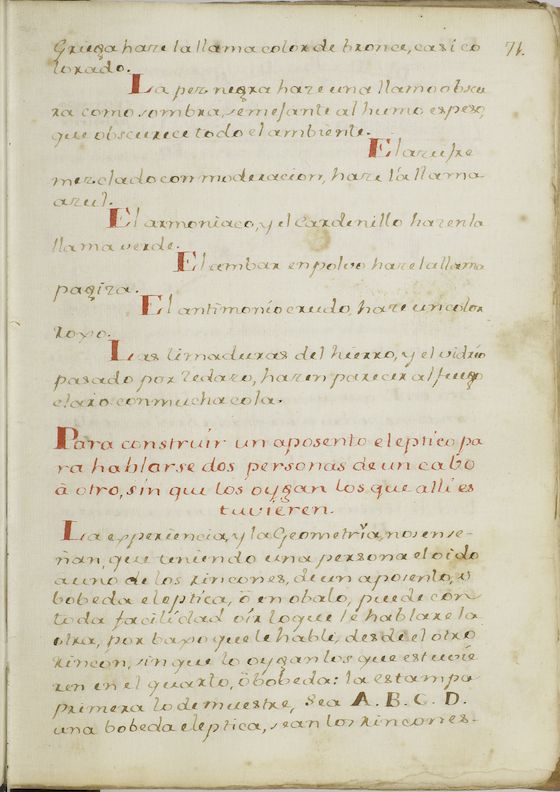 Griega hace la llama color de bronce, casi co
lorado.
71.
La pez negra hace una llama obscu
ra como sombra, semejante al humo espeso,
que obscurece todo el ambiente.
El azufre
mezclado con moderacion, hace la llama
azul.
El armoniaco, y el Cardenillo hazen la
llama verde.
El ambar en polvo hace la llama
pagiza.
El antimonio crudo, hace un color
roxo.
Las limaduras del hierro, y el vidrio
pasado por zedazo, hazen parecer al fuego
claro con mucha cola.
Para construir un aposento eleptico pa
ra hablarse dos personas de un cabo
à otro, sin que los oygan los que alli es
tuvieren.
La experiencia, y la Geometria, nos ense-
ñan, que teniendo una persona el oido
a uno de los rincones, de un aposento, ò
bobeda eleptica, ò en obalo, puede con
toda facilidad oir lo que le hablare la
otra, por baxo que le hable, desde el otro
rincon, sin que lo oygan los que estuvie
ren en el quarto, ò bobeda: la estampa
primera lo demuestre, Sea A. B. C. D.
una bobeda eleptica, sean los rincones.